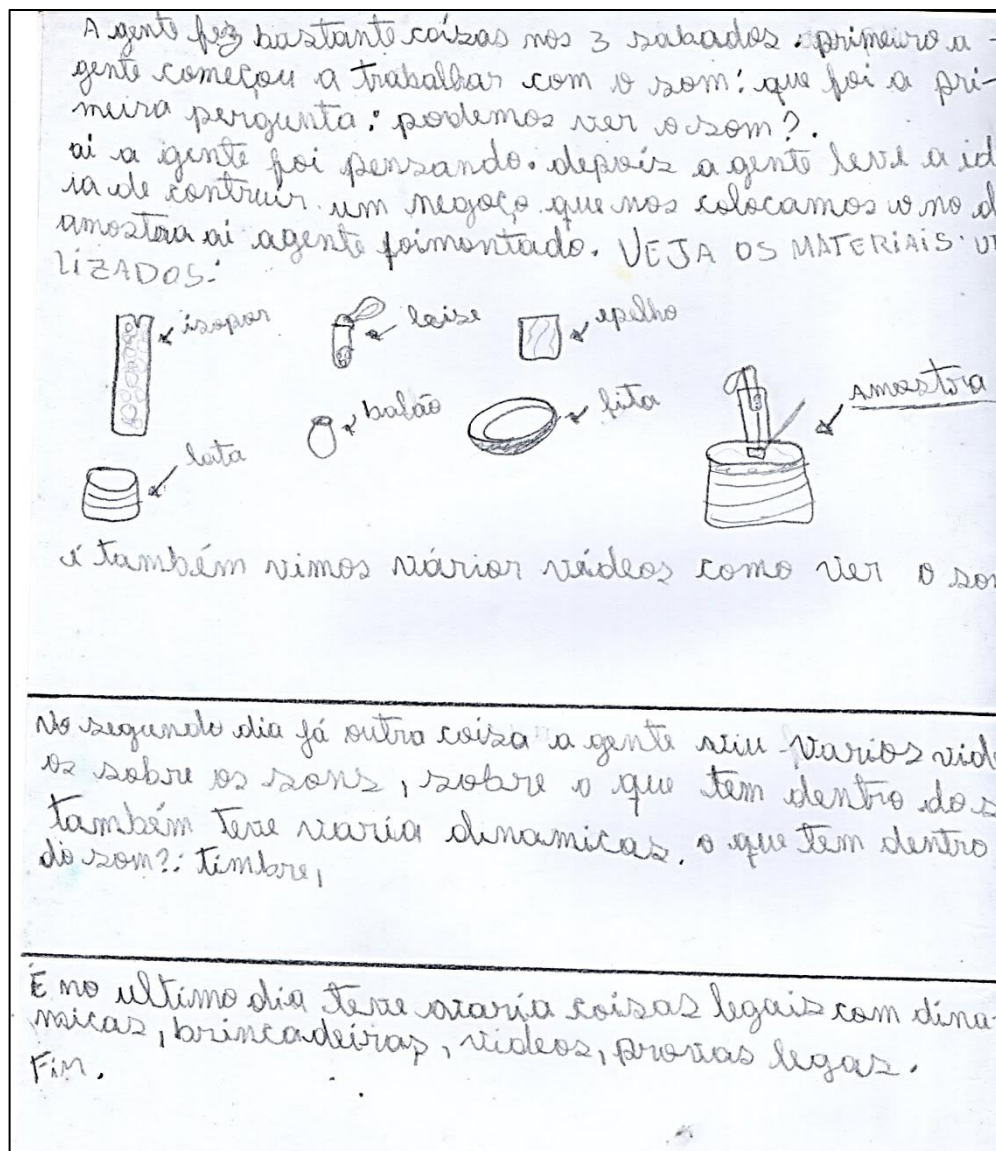 A gente fez bastante coizas nos 3 sabados. primeiro a
gente começou a trabalhar com o som: que foi a pri-
meira pergunta: podemos ver o som?.
ai a gente foi pensando. depois a gente teve a id
ia de contruir um negoço que nos colocamos o no d
amostra ai agente foimontado. VEJA OS MATERiAiS UT
LiZADOS:
isopor
laise
epelho
balão
fita
amostra
lata
é também vimos várior vídeos como ver o som
No segundo dia já outra coisa a gente viu varios vide
os sobre os sons, sobre o que tem dentro do s
também teve varia dinamicas. o que tem dentro
do som?: timbre,
E no ultimo dia teve varia coisas legais com dina-
micas, brincadeiras, videos, provas legas.
Fim.